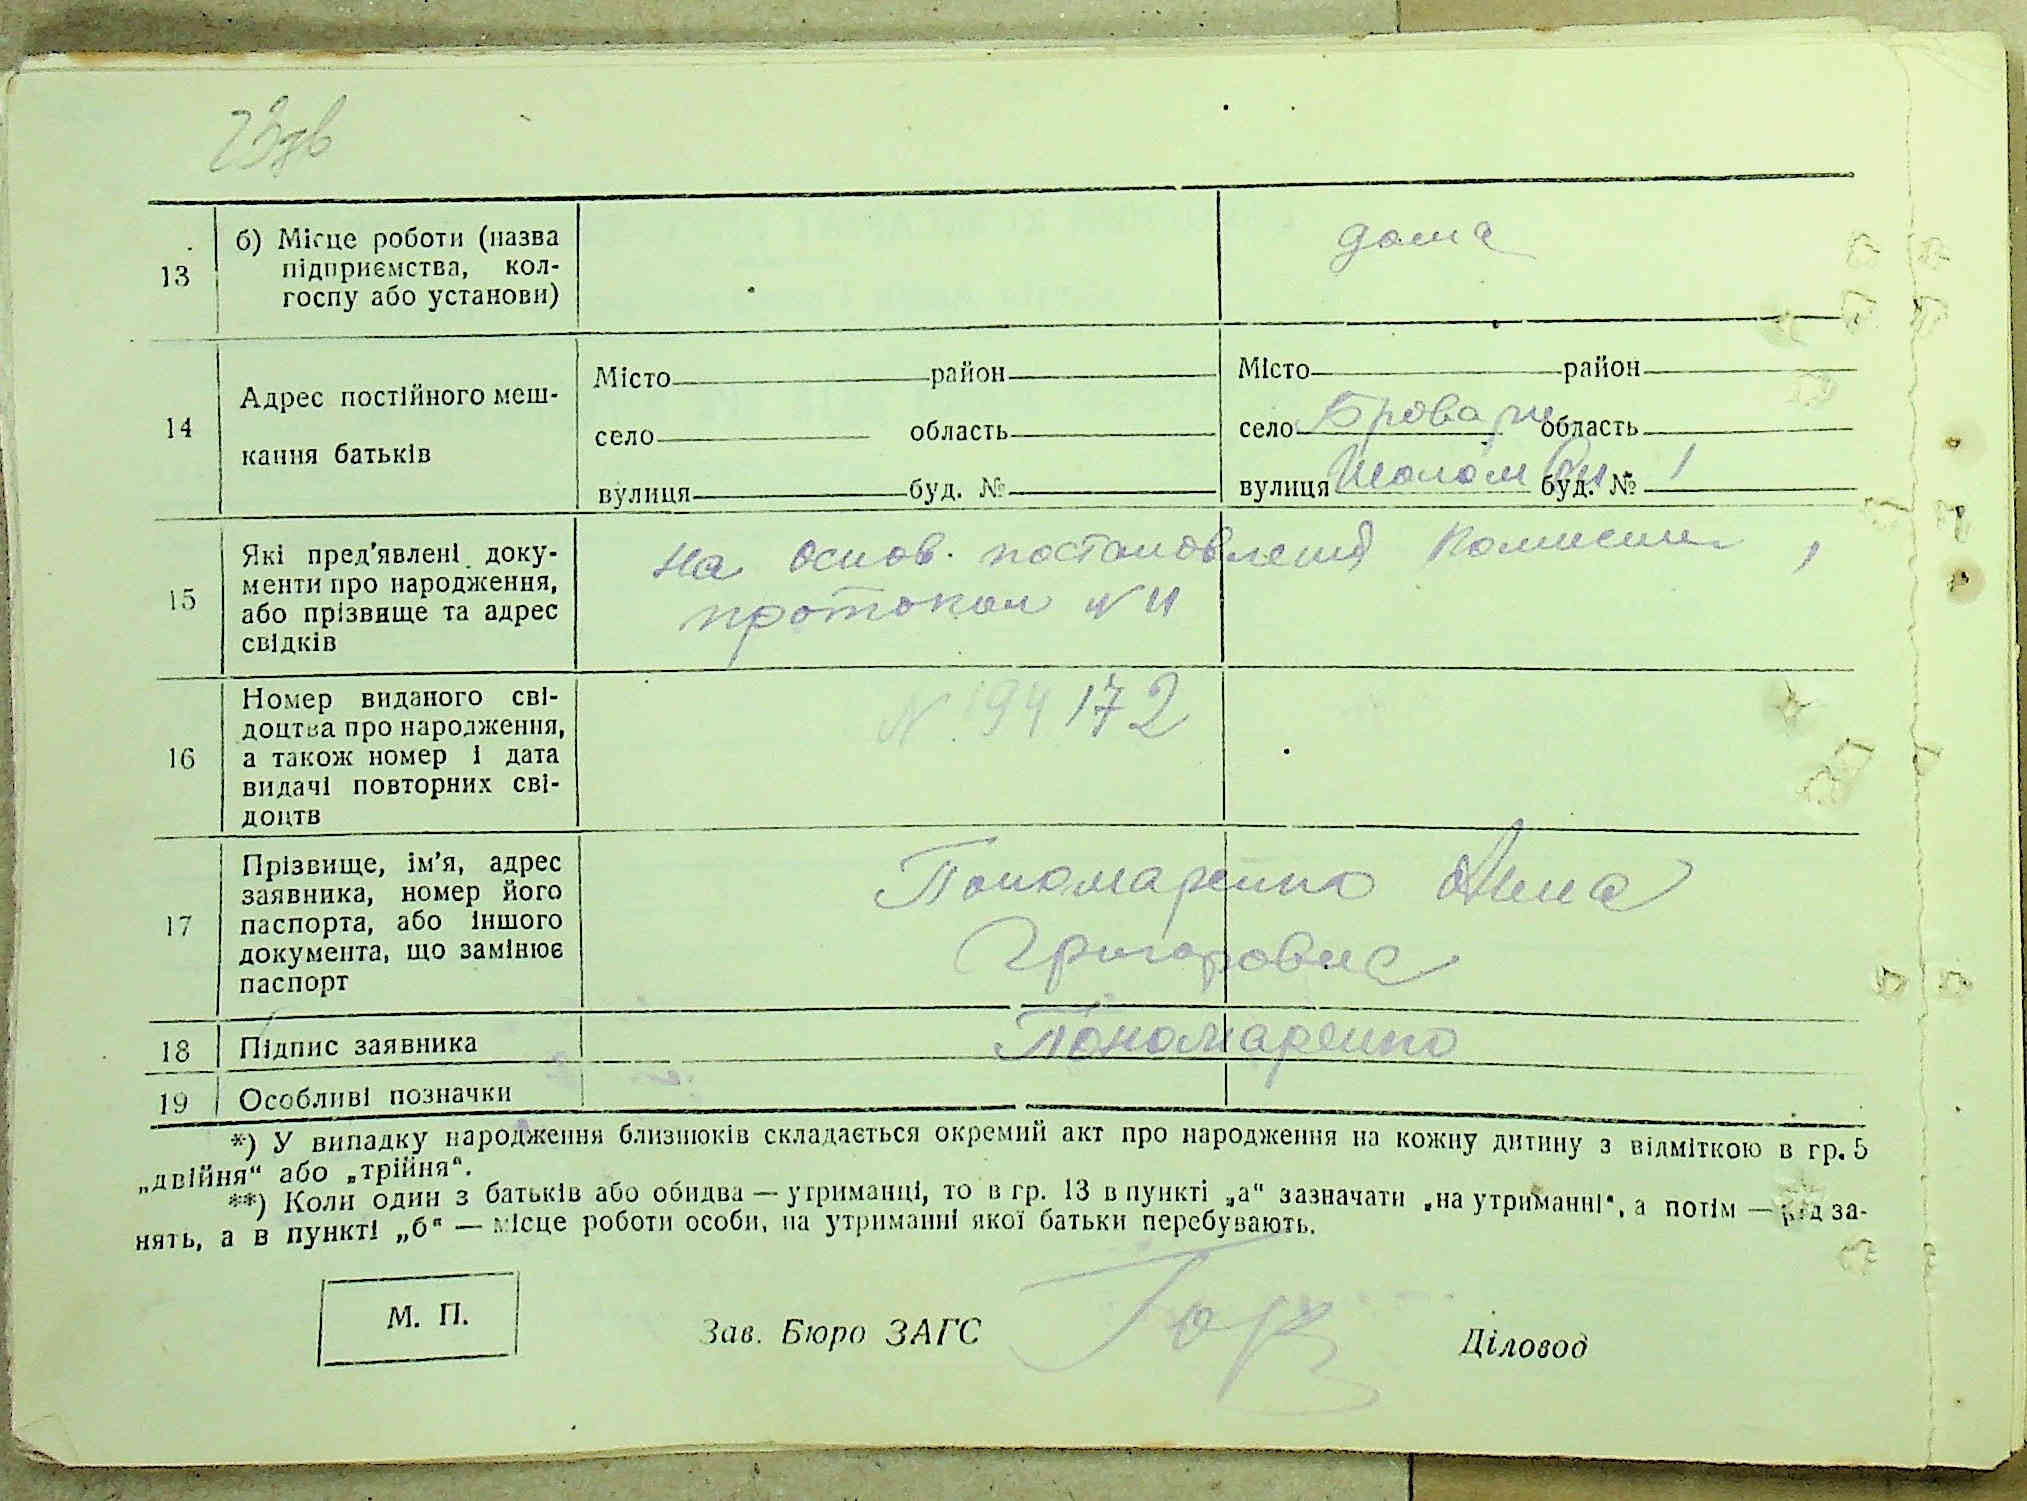 13
б) Місце роботи (назва
підприємства, кол-
госпу або установи)
дома
14
Адрес постійного меш-
кання батьків
Місто район
село область
вулиця буд. №
Місто район
село Бровари область
вулиця Шолом буд. № 1
15
Які пред'явлені доку-
менти про народження,
або прізвище та адрес
свідків
На основ. постановления Комисии,
протокол N 11
16
Номер виданого сві-
доцтва про народження,
а також номер і дата
видачі повторних сві-
доцтв
N 194172
17
Прізвище, ім'я, адрес
заявника, номер його
паспорта, або іншого
документа, що замінює
паспорт
Пономаренко Анна
Григоровна
18
Підпис заявника
Пономаренко
19
Особливі позначки
*) У випадку народження близнюків складається окремий акт про народження на кожну дитину з відміткою в гр. 5
„двійня“ або „трійня“.
**) Коли один з батьків або обидва — утриманці, то в гр. 13 в пункті „а“ зазначати „на утриманні“, а потім — рід за-
нять, а в пункті „б“ — місце роботи особи, на утриманні якої батьки перебувають.
М. П.
Зав. Бюро ЗАГС
Діловод